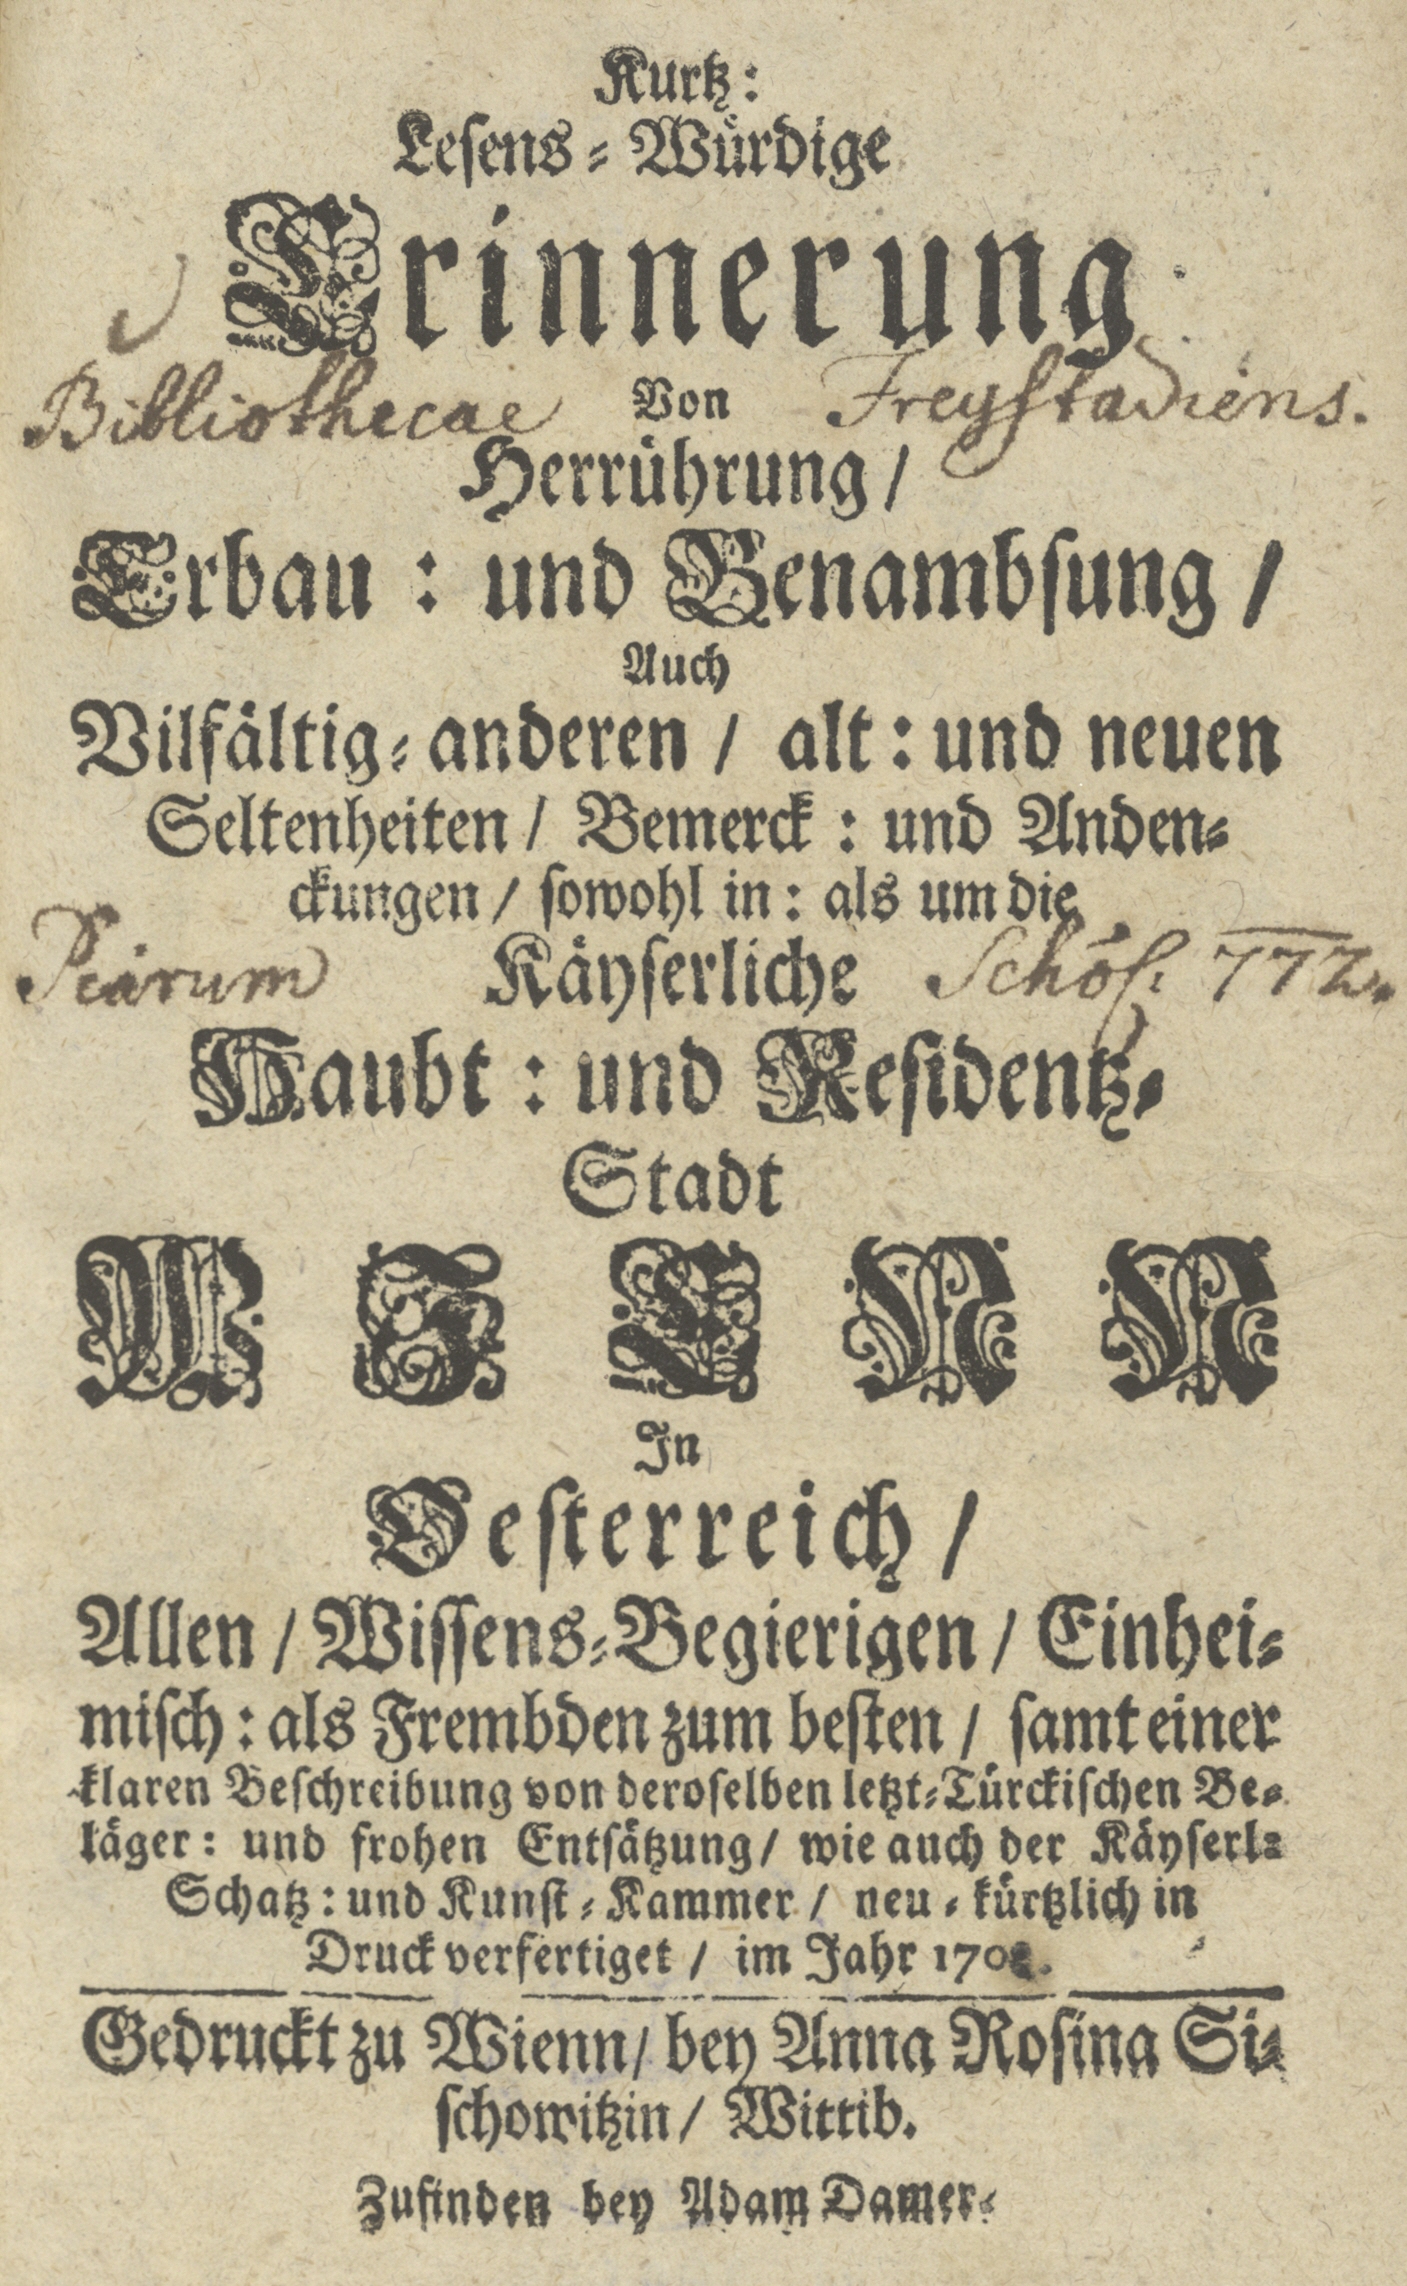 Kurtz:
Lesens-Würdige
Erinnerung
Bibliothecae Von Freystadiens.
Herrührung /
Erbau : und Benambsung /
Auch
Vilfältig-anderen / alt : und neuen
Seltenheiten / Bemerck : und Anden-
ckungen / sowohl in : als um die
Piarum Käyserliche Schol. 772.
Haubt : und Residentz-
Stadt
WIENN
In
Oesterreich /
Allen / Wissens-Begierigen / Einhei-
misch : als Frembden zum besten / samt einer
klaren Beschreibung von deroselben letzt-Türckischen Be-
läger : und frohen Entsätzung / wie auch der Käyserl-
Schatz : und Kunst-Kammer / neu-kürtzlich in
Druck verfertiget / im Jahr
Gedruckt zu Wienn / bey Anna Rosina Si-
schowitzin / Wittib.
Zufinden bey Adam Damer-